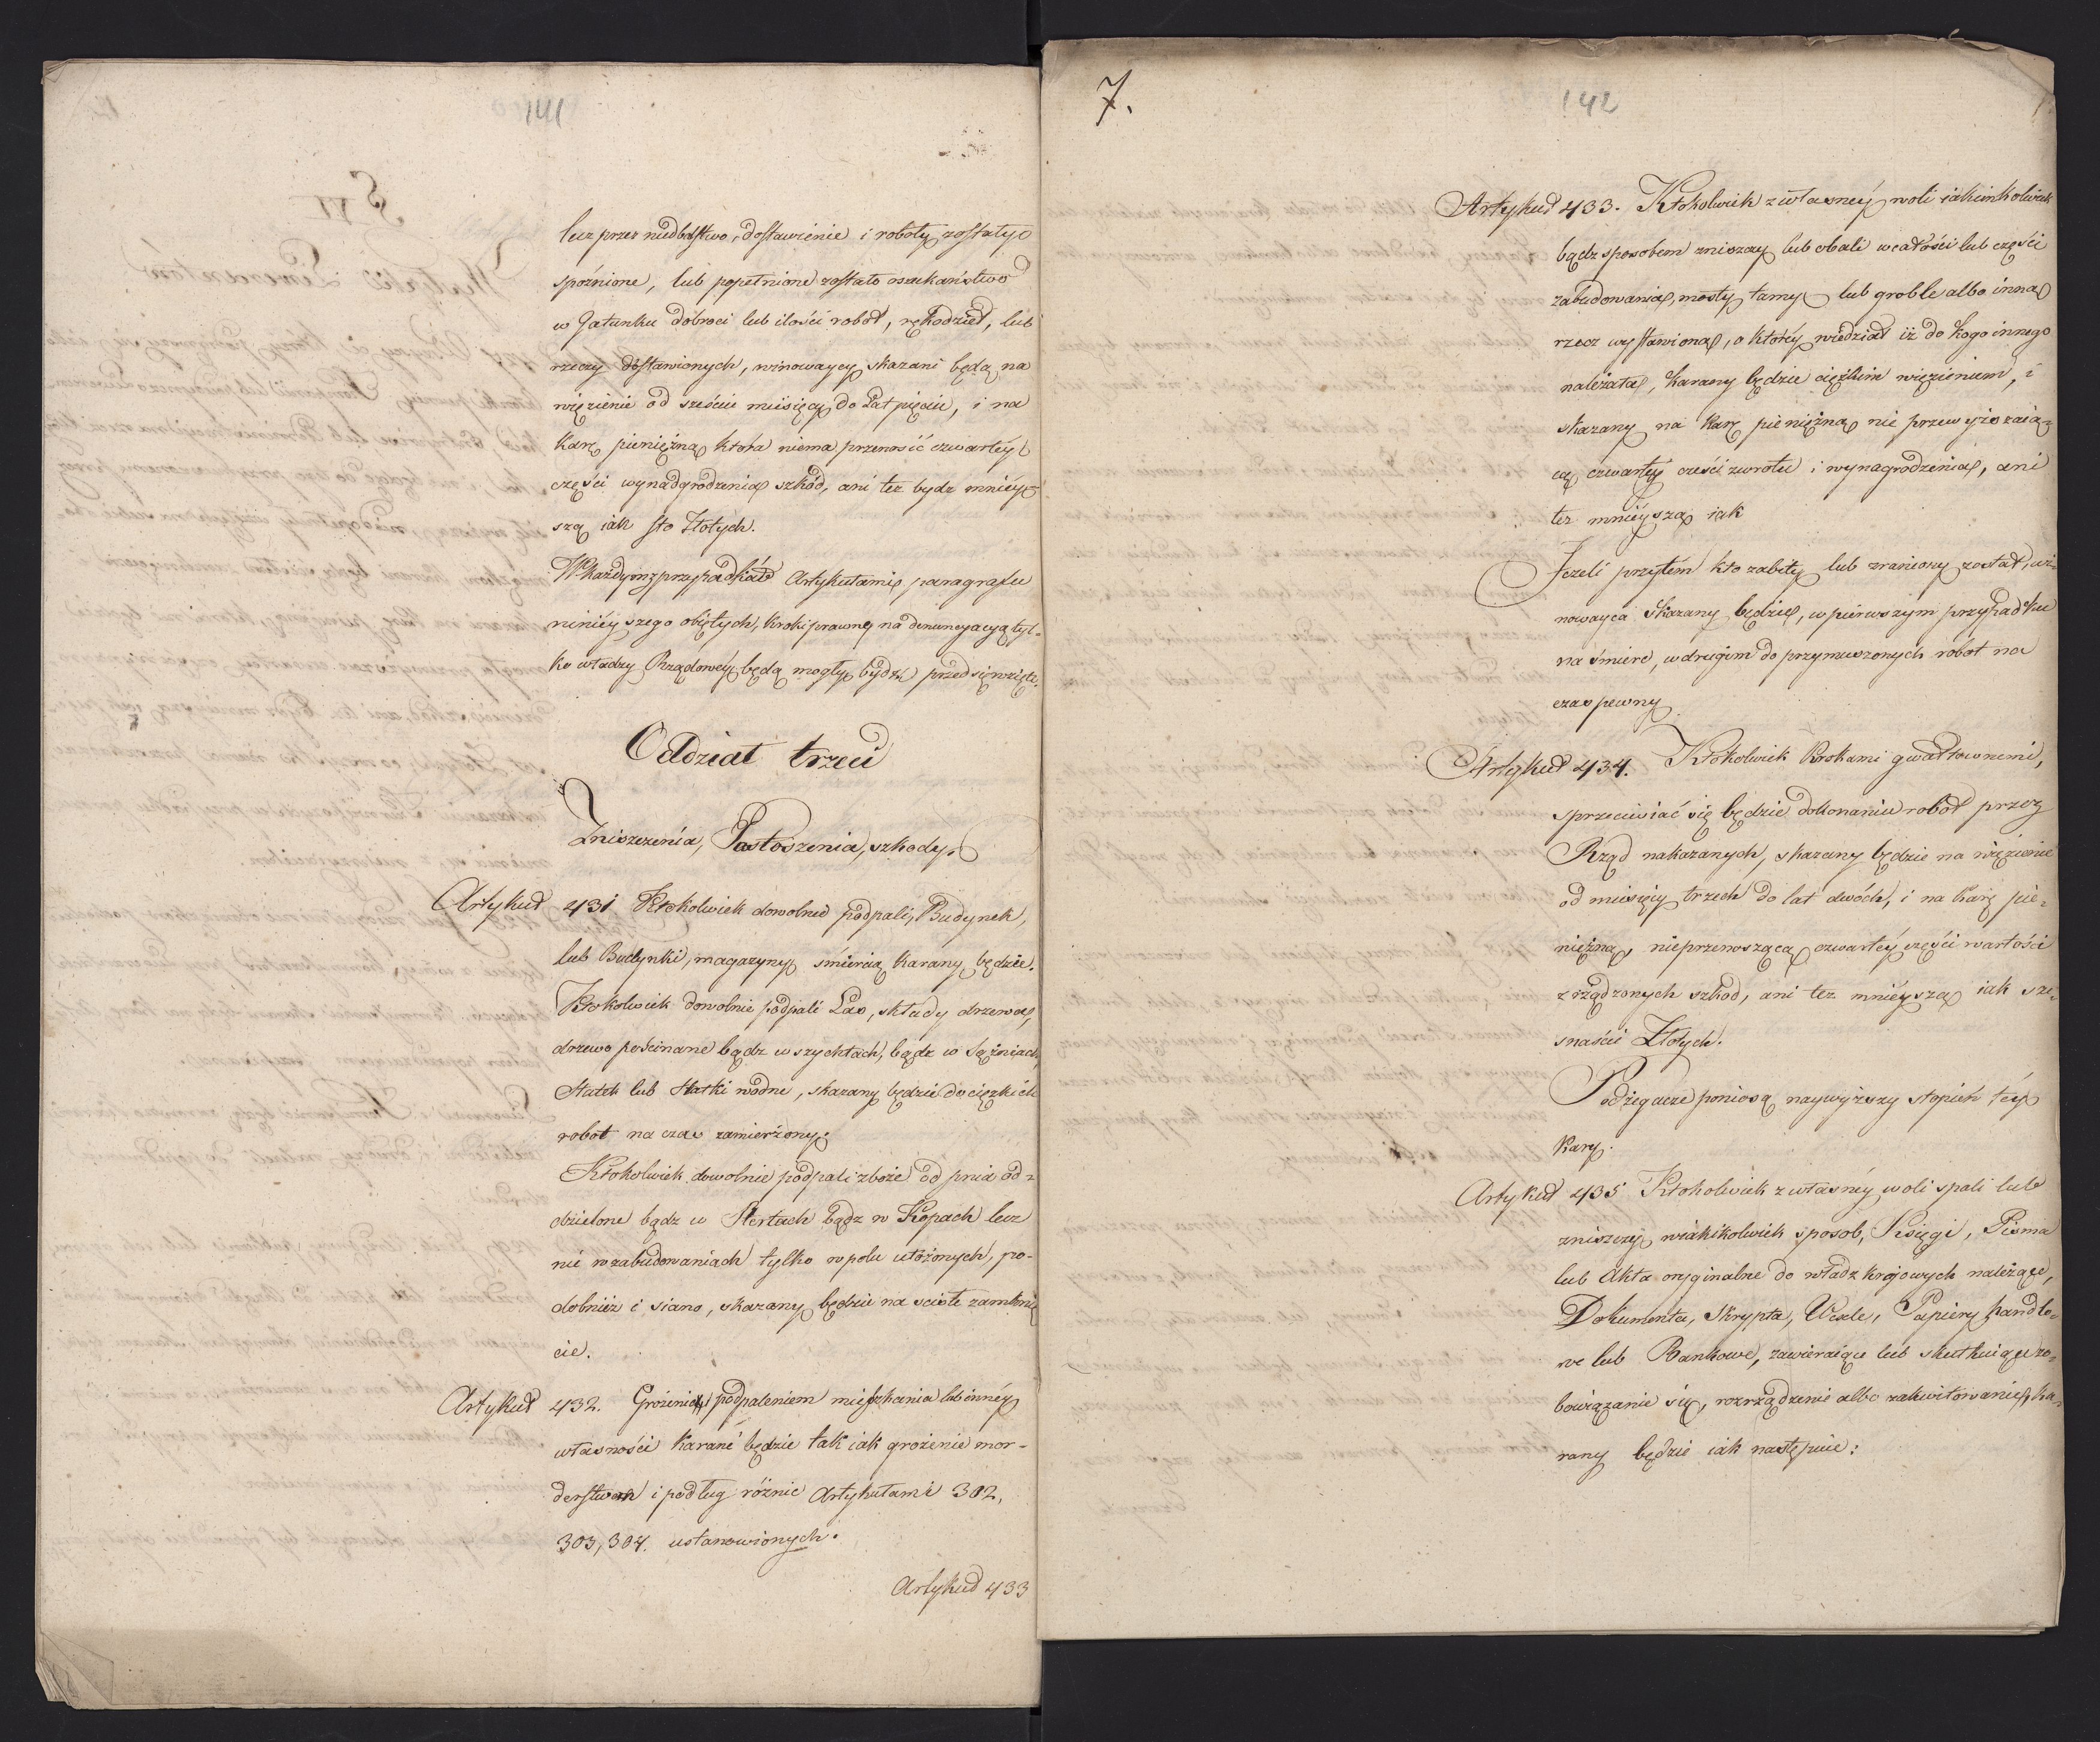 141
lecz przez niedbalstwo, dostawienie i roboty zostały
spóźnione, lub popełnione zostało oszukaństwo
w Gatunku dobroci lub ilości robót, rękodzieł, lub
rzeczy dostawionych, winowaycy skazani będą na
więzienie od sześciu miesięcy do Lat pięciu, i na
karę pieniężną która niema przenosić czwartéy
części wynadgrodzenia szkód, ani też bydz mniéy-
szą iak sto Złotych.
W każdym przypadku Artykułami paragrafu
ninieyszego obiętych, kroki prawne na denuncyacyą tyl-
ko władzy Rządowéy będą mogły bydź przedsięwzięte.
Oddział trzeci
Zniszczenia, Pustoszenia, szkody.
Artykuł 431 Ktokolwiek dowolnie podpali Budynek,
lub Budynki, magazyny śmiercią karany będzie.
Ktokolwiek dowolnie podpali Las, składy drzewa,
drzewo pościnane bądz w szychtach, bądz w Sążniach,
Statek lub Statki wodne, skazany będzie do ciężkich
robot na czas zamierzony.
Ktokolwiek dowolnie podpali zboże od pnia od-
dzielone bądz w Stertach bądz w Kopach lecz
nie w zabudowaniach tylko w polu ułożonych, po-
dobnież i siano, skazany będzie na ścisłe zamknię
cie.
Artykuł 432. Grożenie podpaleniem mieszkania lub innéy
własności karane będzie tak iak grożenie mor-
derstwem i podług różnic Artykułami 302,
303, 304. ustanowionych.
Artykuł 433
7.
142
Artykuł 433. Ktokolwiek z własnéy woli iakimkolwiek
bądz sposobem zniszczy lub obali w całości lub części
zabudowania, mosty tamy lub groble albo inną
rzecz wystawioną, o któréy wiedział iż do kogo innego
należała, karany będzie ciężkim więzieniem, i
skazany na karę pieniężną nie przewyższaią-
cą czwartéy części zwrotu i wynagrodzenia, ani
też mniéyszą iak
Jeżeli przytém kto zabity lub zraniony został, wi-
nowayca skazany będzie, w pierwszym przypadku
na śmierć, w drugim do przymuszonych robót na
czas pewny
Artykuł 434. Ktokolwiek krokami gwałtownemi,
sprzeciwiać się będzie dokonaniu robót przez
Rząd nakazanych, skazany będzie na więzienie
od miesięcy trzech do lat dwóch, i na karę pie-
niężną, nieprzenoszącą czwartéy części wartości
zrządzonych szkód, ani też mniéyszą iak sze-
snaście Złotych.
Podżegacze poniosą naywyższy stopień téy
kary.
Artykuł 435 Ktokolwiek z własnéy woli spali lub
zniszczy w iakikolwiek sposob, Księgi, Pisma
lub Akta oryginalne do władz krajowych należące,
Dokumenta, Skrypta, Wexle, Papiery handlo-
we lub Bankowe, zawieraiące lub skutkuiące zo-
bowiązanie się, rozrządzenie albo zakwitowanie, ka-
rany będzie iak następuie: